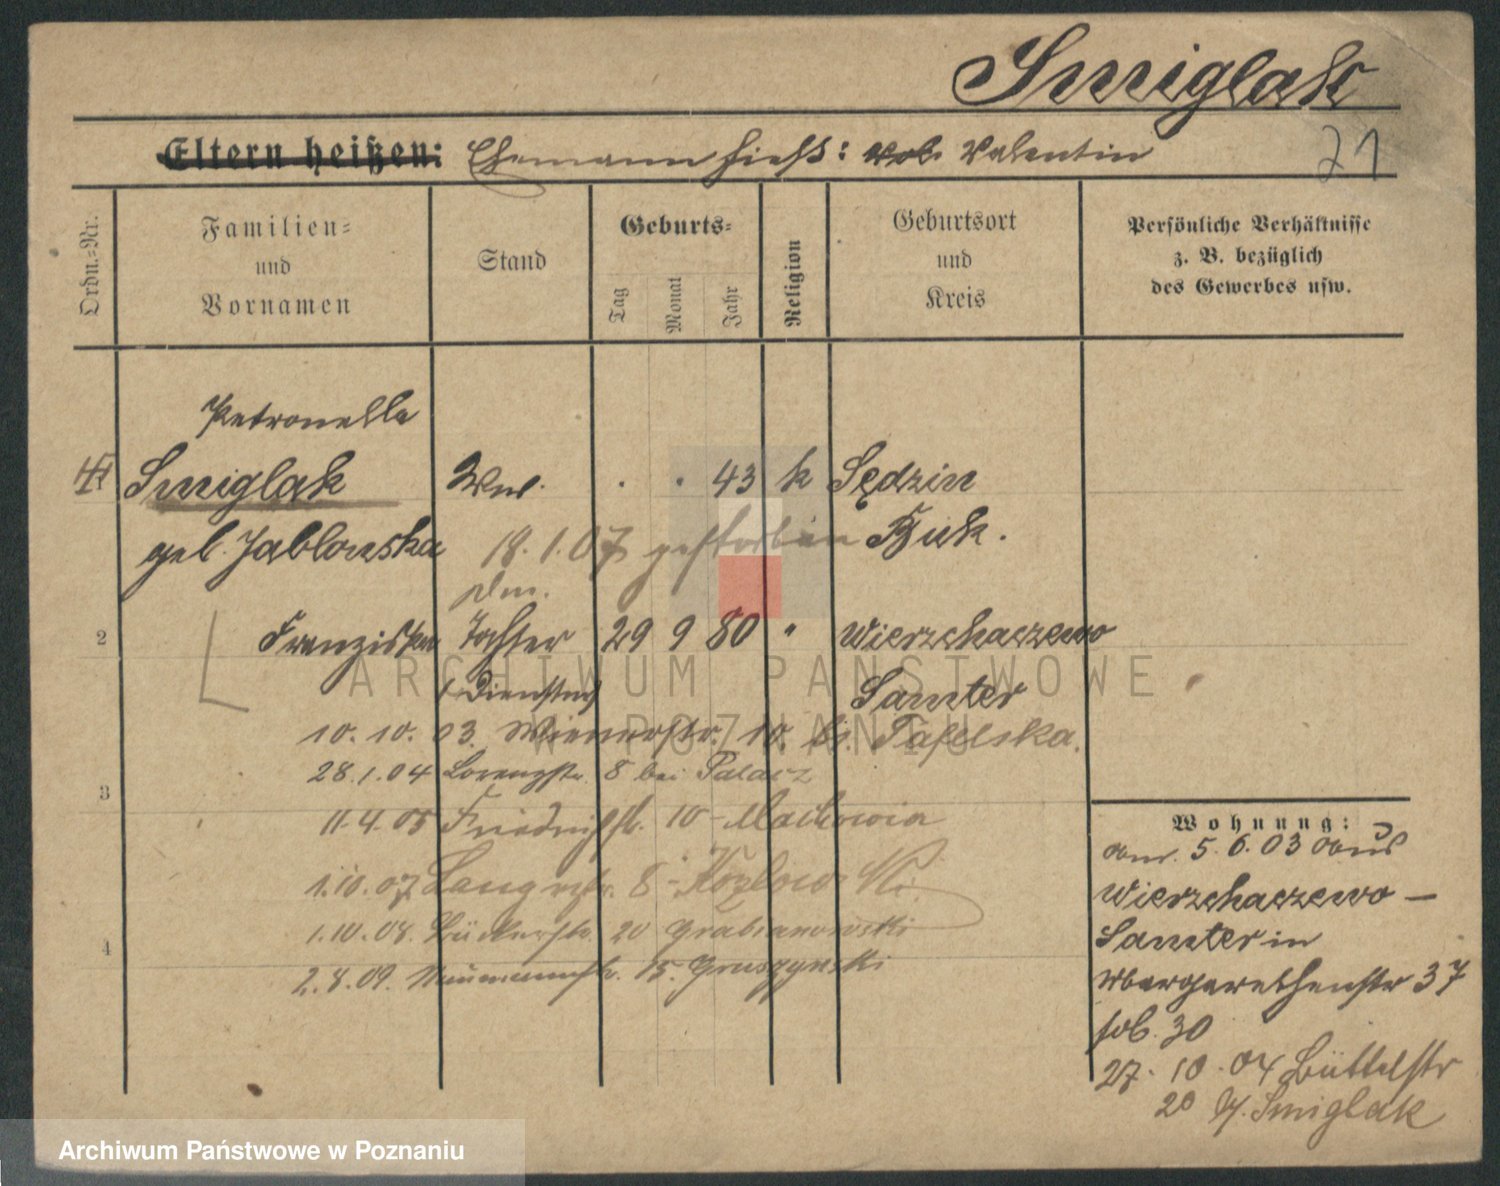 Smiglak
Eltern heißen: Ehemann hieß: Valentin
71
Ordn.-Nr.
Familien-
und
Vornamen
Stand
Geburts-
Tag
Monat
Jahr
Religion
Geburtsort
und
Kreis
Persönliche Verhältnisse
z. B. bezüglich
des Gewerbes usw.
Petronella
Smiglak Ww. . . 43 k Sędzin
geb. Jablonska 18.1.07 gestorben Buk.
2 Franziska Tochter 29 9 80 " Wierzchaczewo
Samter
10.10.03. Wienerstr. 10. bei Tafelska.
28.1.04 Lorenzstr. 8 bei Palacz
3
11.4.05 Friedrichstr. 10 -
1.10.07 Langestr. 8 - Kozlowski
1.10.08. 20 Grabianowski
4
2.8.09. Naumannstr. 15. Gruszynski
Wohnung:
am. 5.6.03 aus
Wierzchaczewo -
Samter in
Margarethenstr 37
27.10.04 Büttelstr
20 Smiglak
ARCHIWUM PAŃSTWOWE
W POZNANIU
Archiwum Państwowe w Poznaniu